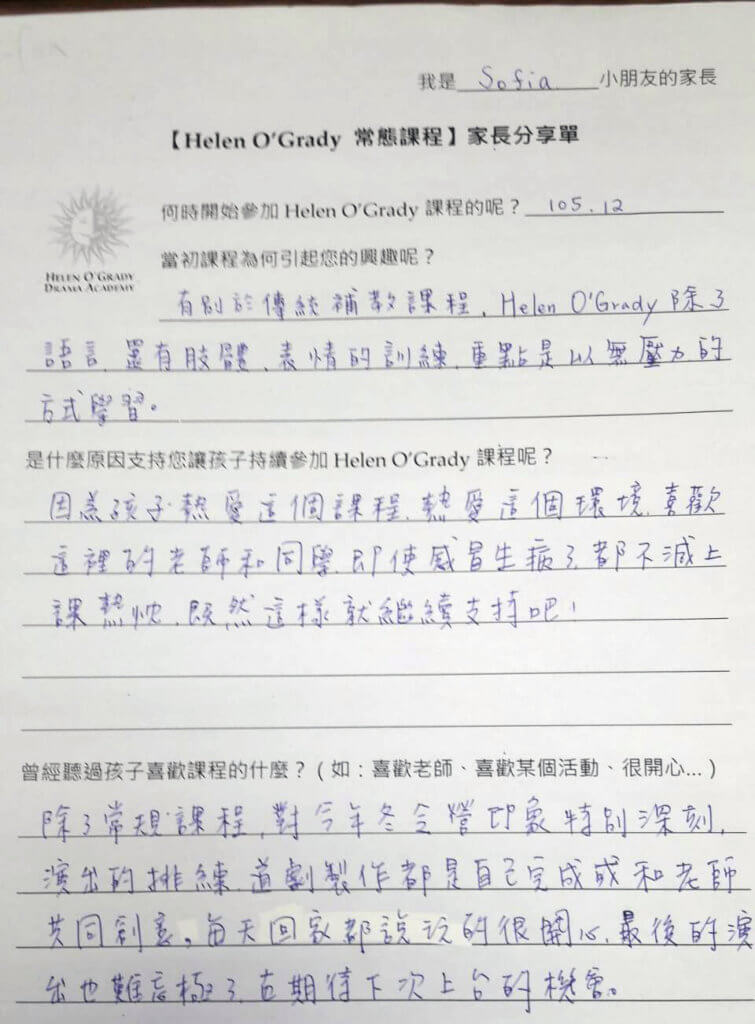 我是 Sofia 小朋友的家長
【Helen O'Grady 常態課程】家長分享單
何時開始參加 Helen O'Grady 課程的呢？ 105.12
當初課程為何引起您的興趣呢？
HELEN O'GRADY
DRAMA ACADEMY
有別於傳統補教課程，Helen O'Grady 除了
語言，還有肢體、表情的訓練，重點是以無壓力的
方式學習。
是什麼原因支持您讓孩子持續參加 Helen O'Grady 課程呢？
因為孩子熱愛這個課程，熱愛這個環境，喜歡
這裡的老師和同學，即使感冒生病了，都不減上
課熱忱，既然這樣就繼續支持吧！
曾經聽過孩子喜歡課程的什麼？（如：喜歡老師、喜歡某個活動、很開心...）
除了常規課程，對今年冬令營印象特別深刻，
演出的排練，道劇製作都是自己完成或和老師
共同創意。每天回家都說玩的很開心，最後的演
出也難忘極了，在期待下次上台的機會。